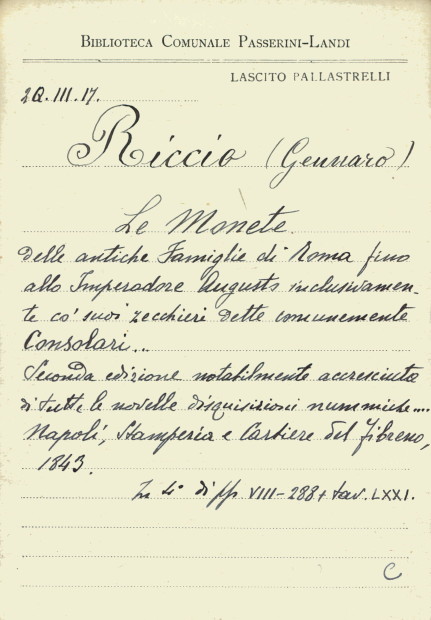 BIBLIOTECA COMUNALE PASSERINI-LANDI
LASCITO PALLASTRELLI
2Q.III.17.
Riccio (Gennaro)
Le Monete
delle antiche Famiglie di Roma fino
allo Imperadore Augusto inclusivamen-
te co' suoi zecchieri dette comunemente
Consolari...
Seconda edizione notabilmente accresciuta
di tutte le novelle disquisizioni nummiche....
Napoli, Stamperia e Cartiere del Fibreno,
1843.
In 4° di pp VIII-288+ tav. LXXI.
C